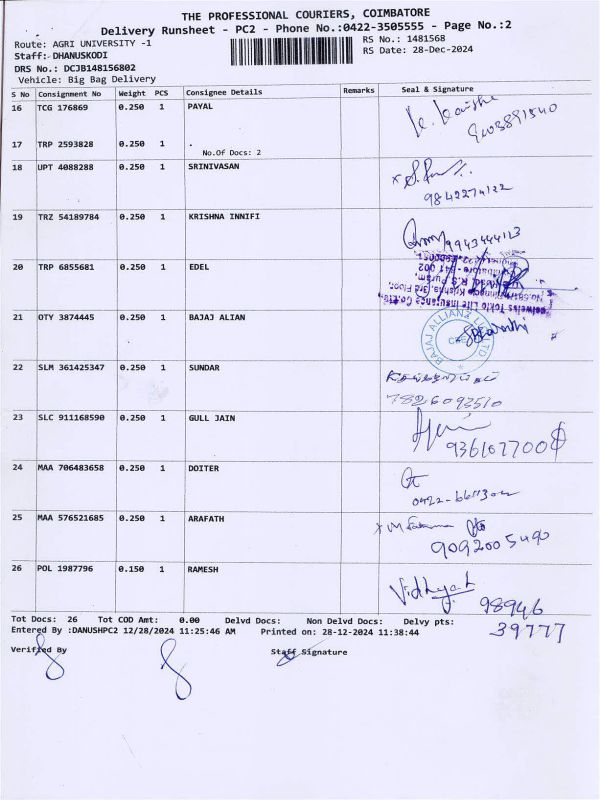 THE PROFESSIONAL COURIERS, COIMBATORE
Delivery Runsheet - PC2 - Phone No.:0422-3505555 - Page No.:2
Route: AGRI UNIVERSITY -1
RS No.: 1481568
Staff: DHANUSKODI
RS Date: 28-Dec-2024
DRS No.: DCJB148156802
Vehicle: Big Bag Delivery
S No Consignment No Weight PCS Consignee Details Remarks Seal & Signature
16 TCG 176869 0.250 1 PAYAL
17 TRP 2593828 0.250 1 .
No.Of Docs: 2
18 UPT 4088288 0.250 1 SRINIVASAN
9842274122
19 TRZ 54189784 0.250 1 KRISHNA INNIFI
9943444123
20 TRP 6855681 0.250 1 EDEL
Tokio Life Insurance Co.Ltd.,
21 OTY 3874445 0.250 1 BAJAJ ALIAN
BAJAJ ALLIANZ LIFE LTD
22 SLM 361425347 0.250 1 SUNDAR
7826093510
23 SLC 911168590 0.250 1 GULL JAIN
24 MAA 706483658 0.250 1 DOITER
25 MAA 576521685 0.250 1 ARAFATH
9092005490
26 POL 1987796 0.150 1 RAMESH
98946
39777
Tot Docs: 26 Tot COD Amt: 0.00 Delvd Docs: Non Delvd Docs: Delvy pts:
Entered By :DANUSHPC2 12/28/2024 11:25:46 AM Printed on: 28-12-2024 11:38:44
Verified By Staff Signature